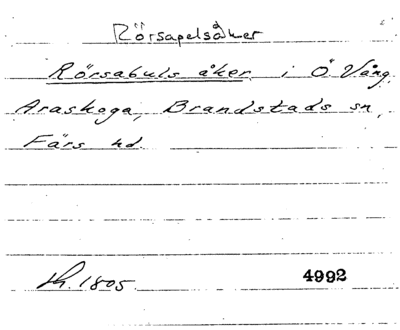 Rörsapelsåker
Rörsabuls åker i Ö Vång,
Araskoga, Brandstads sn,
Färs hd.
Lh. 1805. 4992